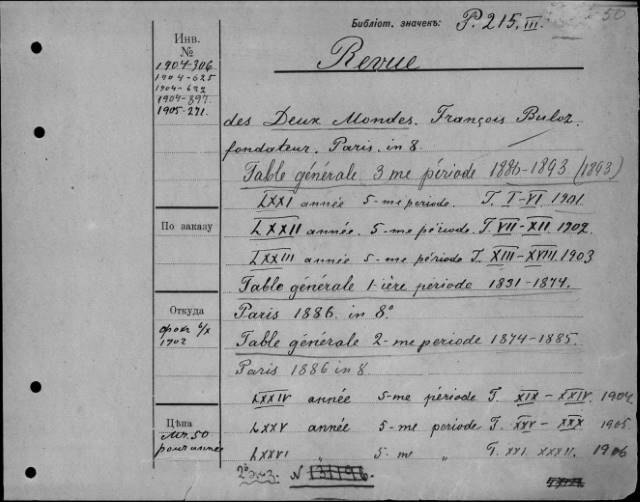 Библіот. значекъ: P. 215. III. 50
Инв.
№
1904-306
1904-625
1904-627
1904-897
1905-271.
Revue
des Deux Mondes. François Buloz
fondateur. Paris. in 8.
Table générale 3 me période 1886-1893 (1893)
LXXI année 5-me periode. T. I-VI. 1901.
По заказу
LXXII année. 5-me période. T. VII-XII. 1902.
LXXIII année 5-me période T. XIII-XVIII. 1903
Table générale 1-ière période 1831-1874.
Откуда
1902
Paris 1886. in 8°
Table générale 2-me periode 1874-1885.
Paris 1886 in 8.
LXXIV année 5-me période T. XIX-XXIV. 1904
Цѣна
50
pour année
LXXV année 5-me periode T. XXV-XXX 1905
LXXVI " 5-me " T. XXXI. XXXII. 1906
N 13196